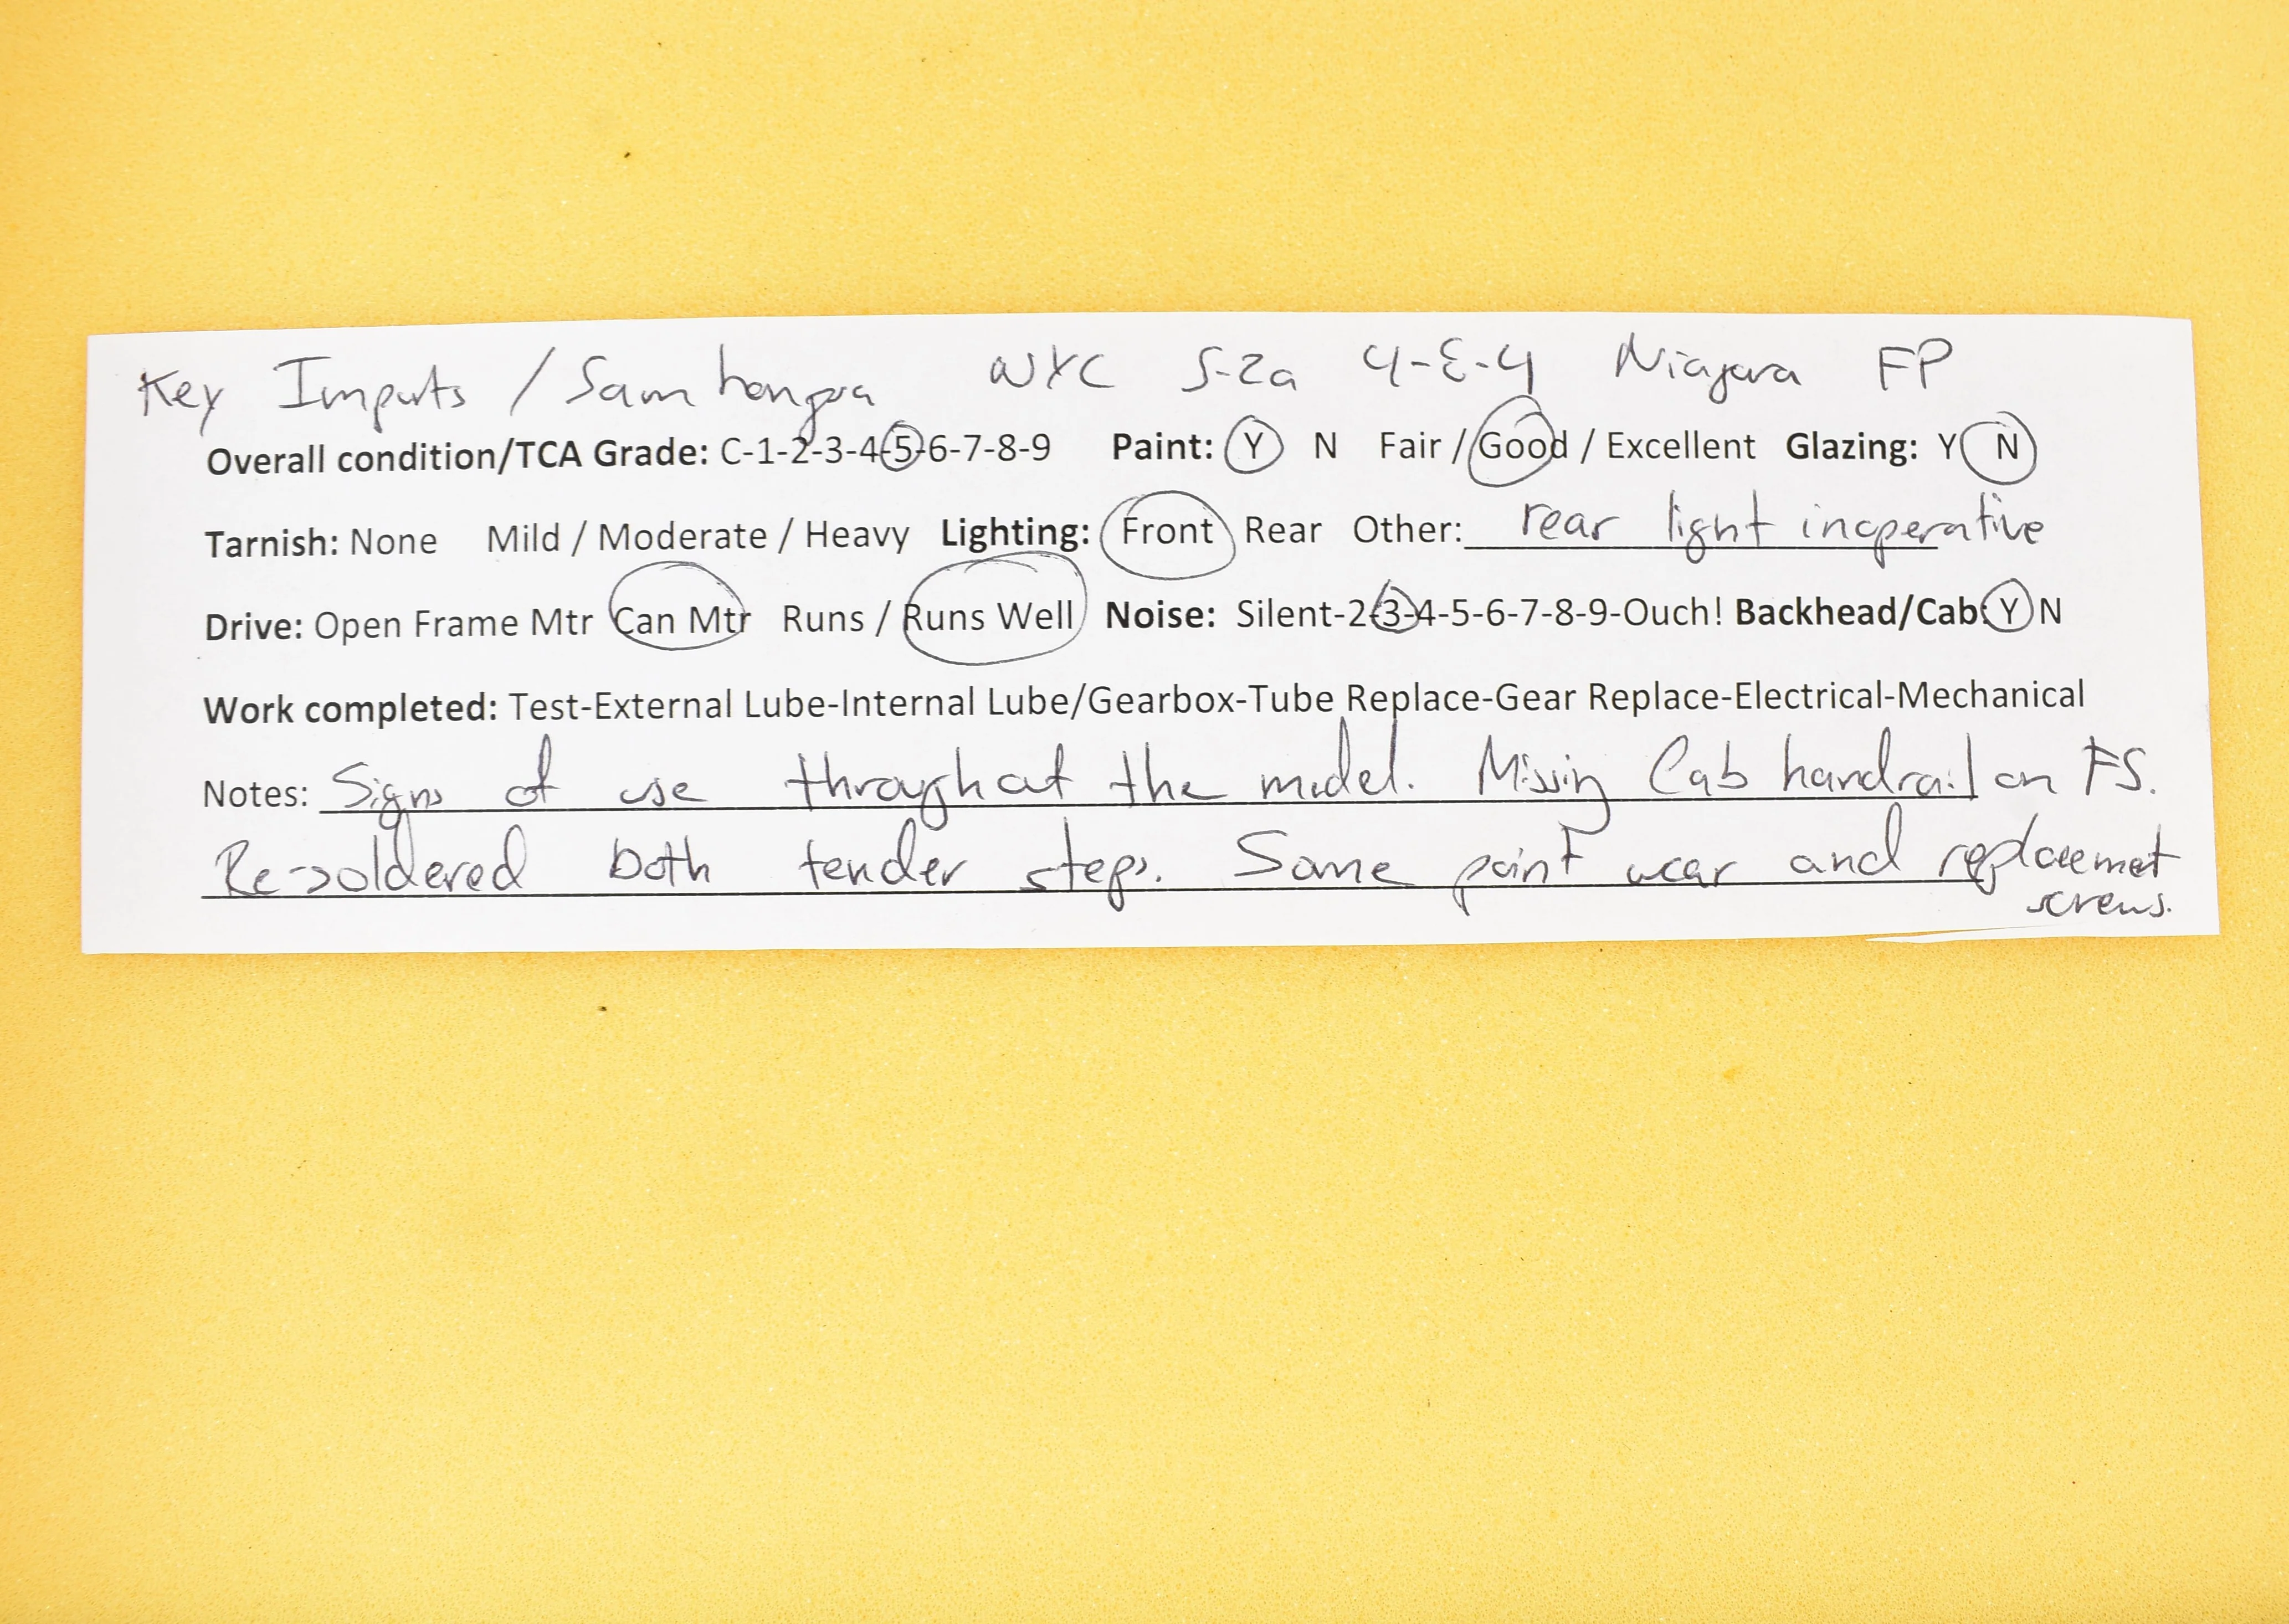 Key Imports / Samhongsa NYC S-2a 4-8-4 Niagara FP
Overall condition/TCA Grade: C-1-2-3-4-5-6-7-8-9 Paint: Y N Fair / Good / Excellent Glazing: Y N
Tarnish: None Mild / Moderate / Heavy Lighting: Front Rear Other: rear light inoperative
Drive: Open Frame Mtr Can Mtr Runs / Runs Well Noise: Silent-2-3-4-5-6-7-8-9-Ouch! Backhead/Cab: Y N
Work completed: Test-External Lube-Internal Lube/Gearbox-Tube Replace-Gear Replace-Electrical-Mechanical
Notes: Signs of use throughout the model. Missing Cab handrail on FS.
Re-soldered both tender steps. Some paint wear and replacement
screws.